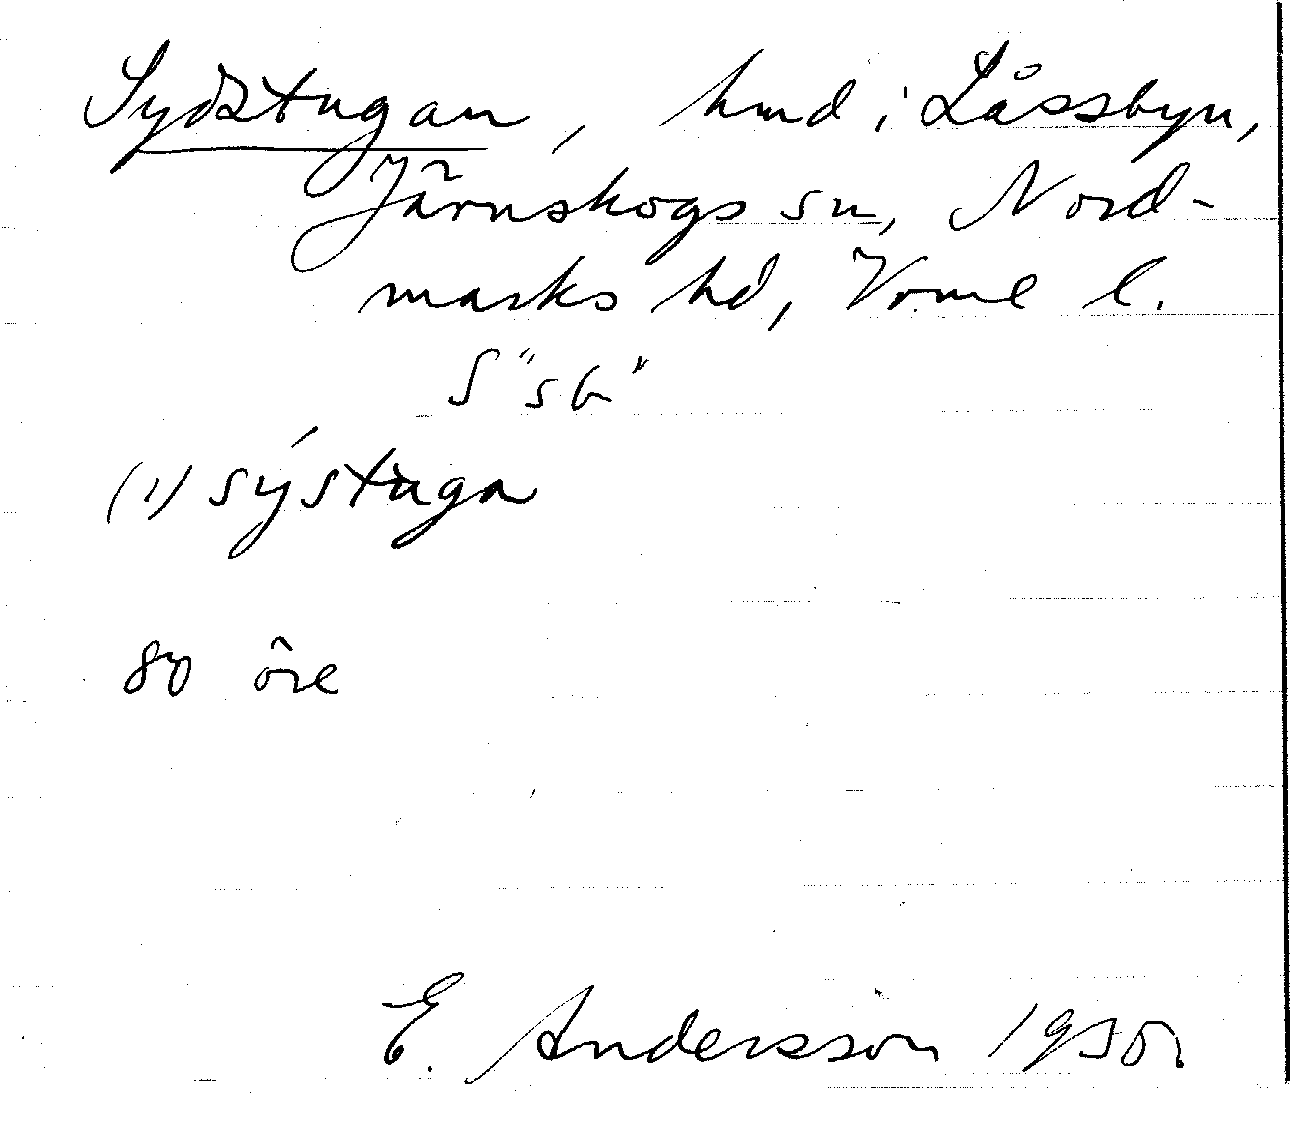 Sydstugan, hmd i Låssbyn,
Järnskogs sn, Nord-
marks hd, Vrml l.
S "sb"
(i) sýstuga
80 öre
E. Andersson 1930.